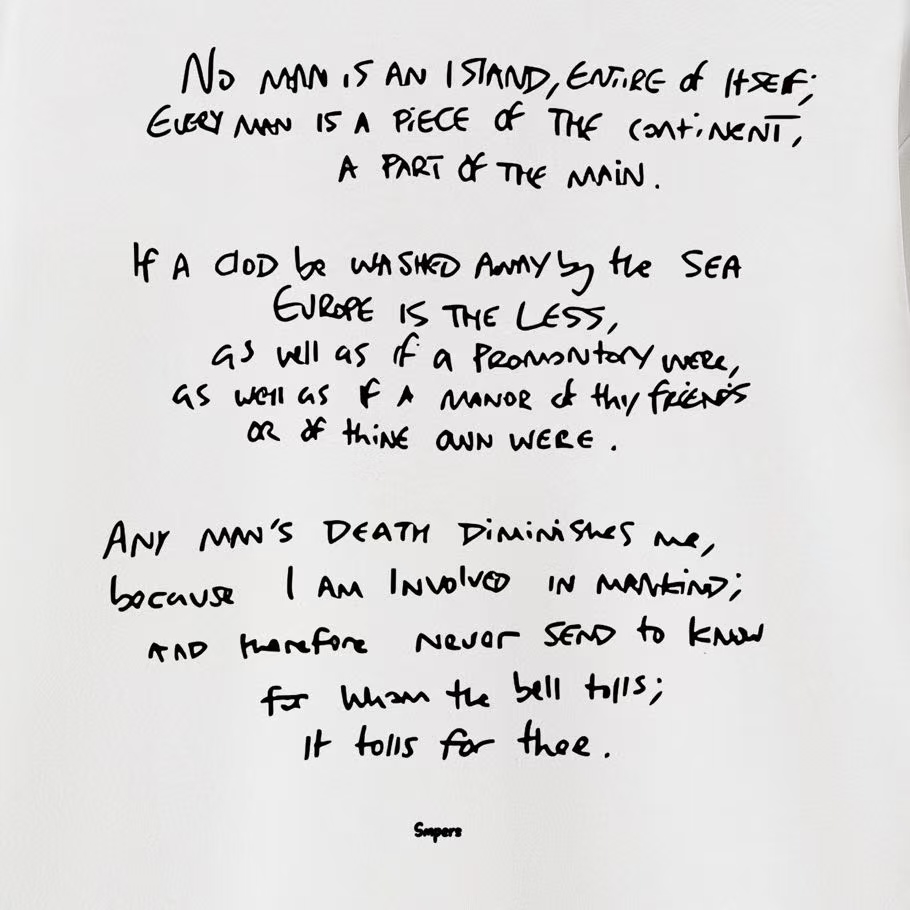 NO MAN IS AN ISLAND, ENTIRE of ITSELF;
EVERY MAN IS A PIECE OF THE CONTINENT,
A PART OF THE MAIN.
If A CLOD be WASHED AWAY by the SEA
EUROPE IS THE LESS,
as well as if a PROMONTORY WERE,
as well as IF A MANOR of thy friends
OR of thine OWN WERE.
ANY MAN'S DEATH Diminishes me,
because I AM INVOLVED IN MANKIND;
AND therefore never SEND to know
for whom the bell tolls;
It tolls for thee.
Smpers